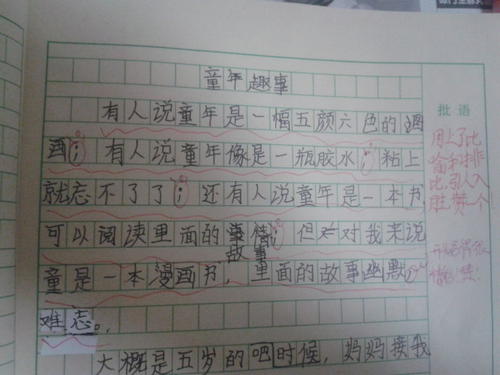 童年趣事
批语
有人说童年是一幅五颜六色的
画；有人说童年像是一瓶胶水；粘上
就忘不了了；还有人说童年是一本书
可以阅读里面的故事；但对我来说
童是一本漫画书，里面的故事幽默
难忘。
大概是五岁的吧时候，妈妈接我
用上了比
喻
引人入
胜，赞一个